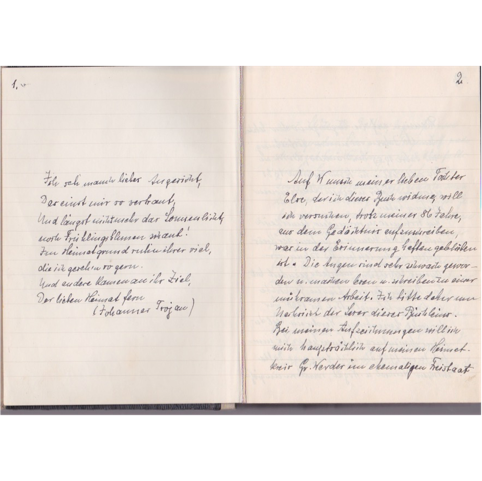 1.
Ich seh manch liebes Angesicht,
Das einst mir so vertraut,
Und längst nicht mehr das Sonnenlicht,
noch Frühlingsblumen schaut!
Im Heimatgrund ruhen ihrer viel,
die ich gesehen so gern.
Und andere kamen an ihr Ziel,
Der lieben Heimat fern
(Johannes Trojan)
2.
Auf Wunsch meiner lieben Tochter
Else, der ich dieses Buch widme, will
ich versuchen, trotz meiner 86 Jahre,
aus dem Gedächtnis aufzuschreiben,
was in der Erinnerung haften geblieben
ist. Die Augen sind sehr schwach gewor-
den u. machen lesen u. schreiben zu einer
mühsamen Arbeit. Ich bitte daher um
Nachsicht der Leser dieses Büchleins.
Bei meinen Aufzeichnungen will ich
mich hauptsächlich auf meinen Heimat-
kreis Gr. Werder im ehemaligen Freistaat